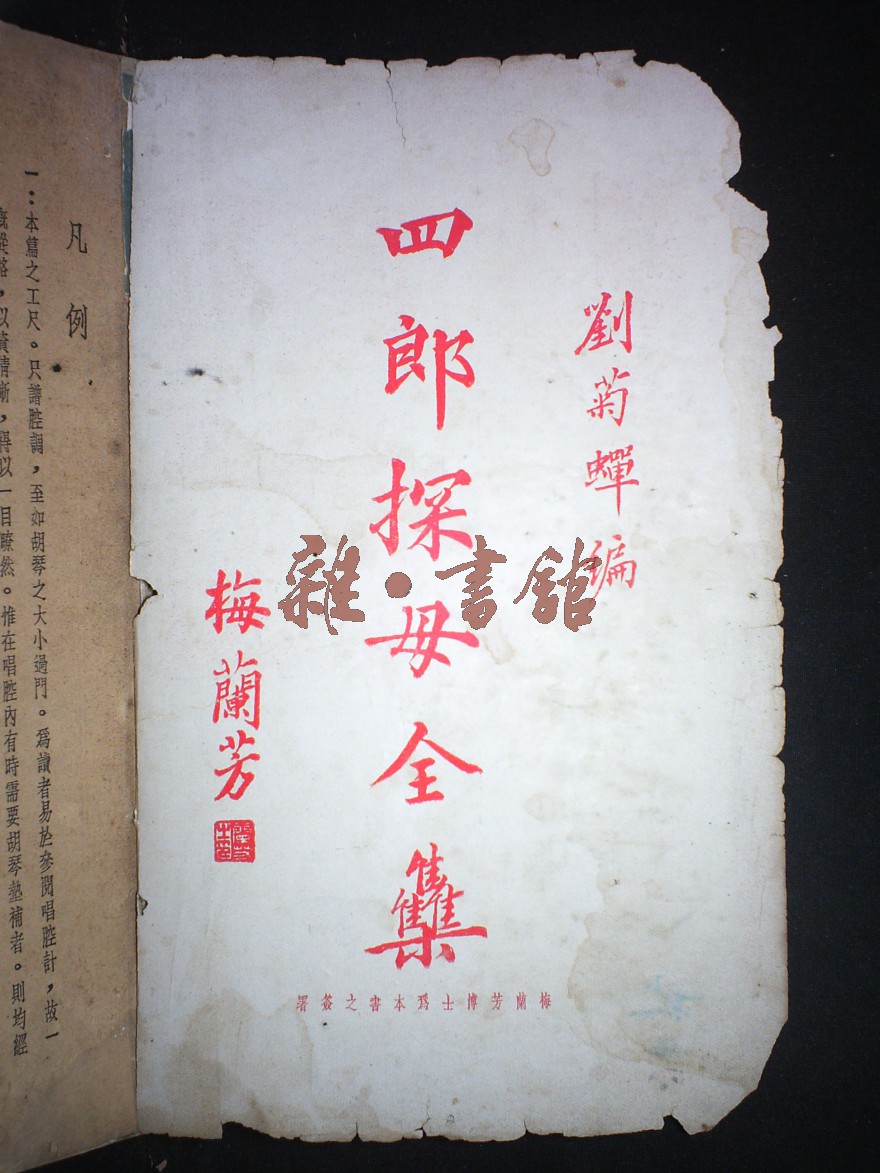 劉菊蟬編
四郎探母全雧
梅蘭芳
梅蘭芳博士爲本書之簽署
雜·書館
凡例
一：本篇之工尺。只譜腔調，至如胡琴之大小過門。爲讀者易於參閱唱腔計，故一
概從略，以資清晰，得以一目瞭然。惟在唱腔內有時需要胡琴墊補者。則均經